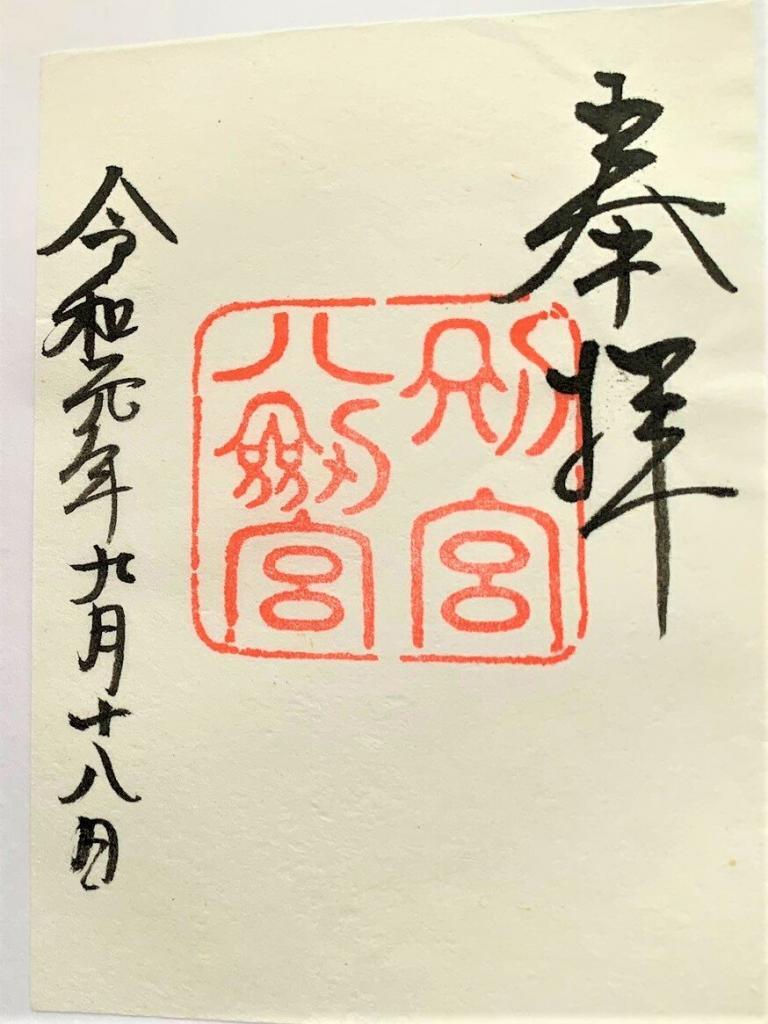 奉拝
別宮
八剱宮
令和元年九月十八日